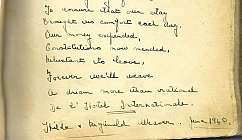 To ensure that our stay
Brought us comfort each day,
Our money expended,
Constitutions now mended,
Reluctant to leave,
Forever we'll weave
A dream more than rational
De l'Hotel Internationale.
Hilda & Reginald Weaver. June 1960.